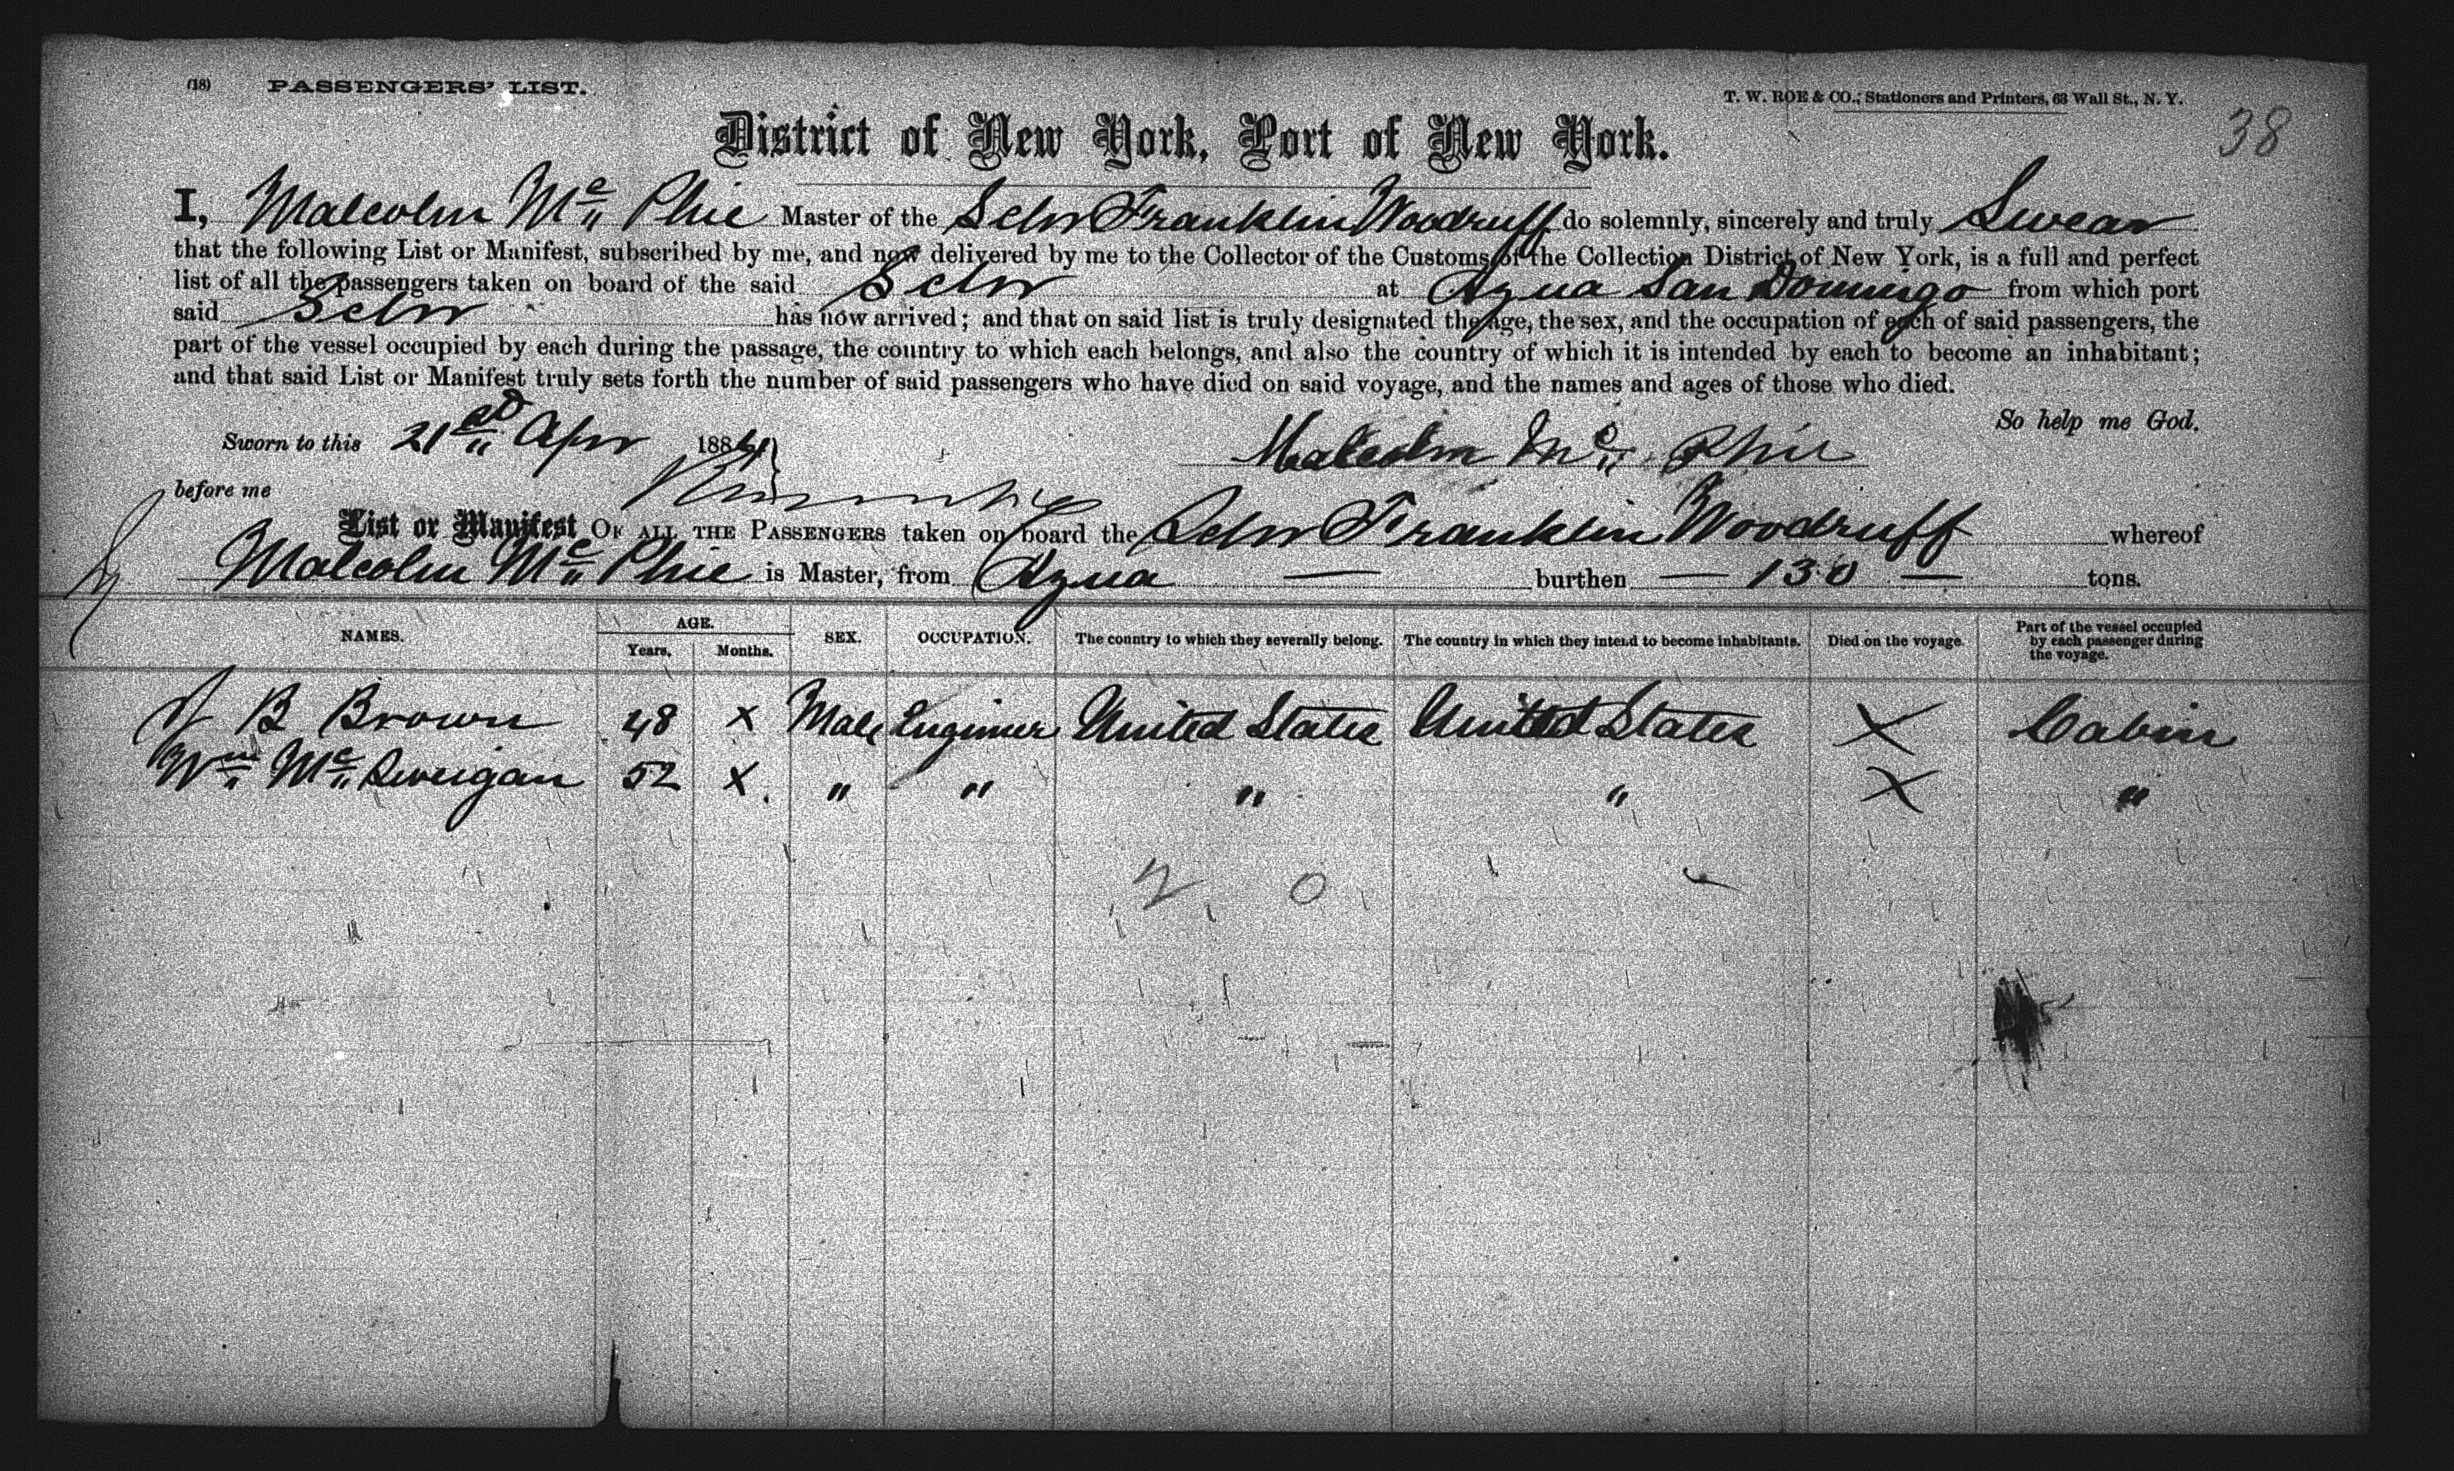 (18) PASSENGERS' LIST.
T. W. ROE & CO., Stationers and Printers, 63 Wall St., N. Y.
38
District of New York, Port of New York.
I, Malcolm Mc Phie Master of the Schr Franklin Woodruff do solemnly, sincerely and truly Swear
that the following List or Manifest, subscribed by me, and now delivered by me to the Collector of the Customs of the Collection District of New York, is a full and perfect
list of all the passengers taken on board of the said Schr at Azua San Domingo from which port
said Schr has now arrived; and that on said list is truly designated the age, the sex, and the occupation of each of said passengers, the
part of the vessel occupied by each during the passage, the country to which each belongs, and also the country of which it is intended by each to become an inhabitant;
and that said List or Manifest truly sets forth the number of said passengers who have died on said voyage, and the names and ages of those who died.
So help me God.
Sworn to this 21st Apr 1884 Malcolm Mc Phie
before me
List or Manifest OF ALL THE PASSENGERS taken on board the Schr Franklin Woodruff whereof
Malcolm Mc Phie is Master, from Azua — burthen — 130 — tons.
NAMES. AGE. Years. Months. SEX. OCCUPATION. The country to which they severally belong. The country in which they intend to become inhabitants. Died on the voyage. Part of the vessel occupied by each passenger during the voyage.
B Brown 48 x Male Engineer United States United States X Cabin
Wm 52 x " " " " X "
2 0